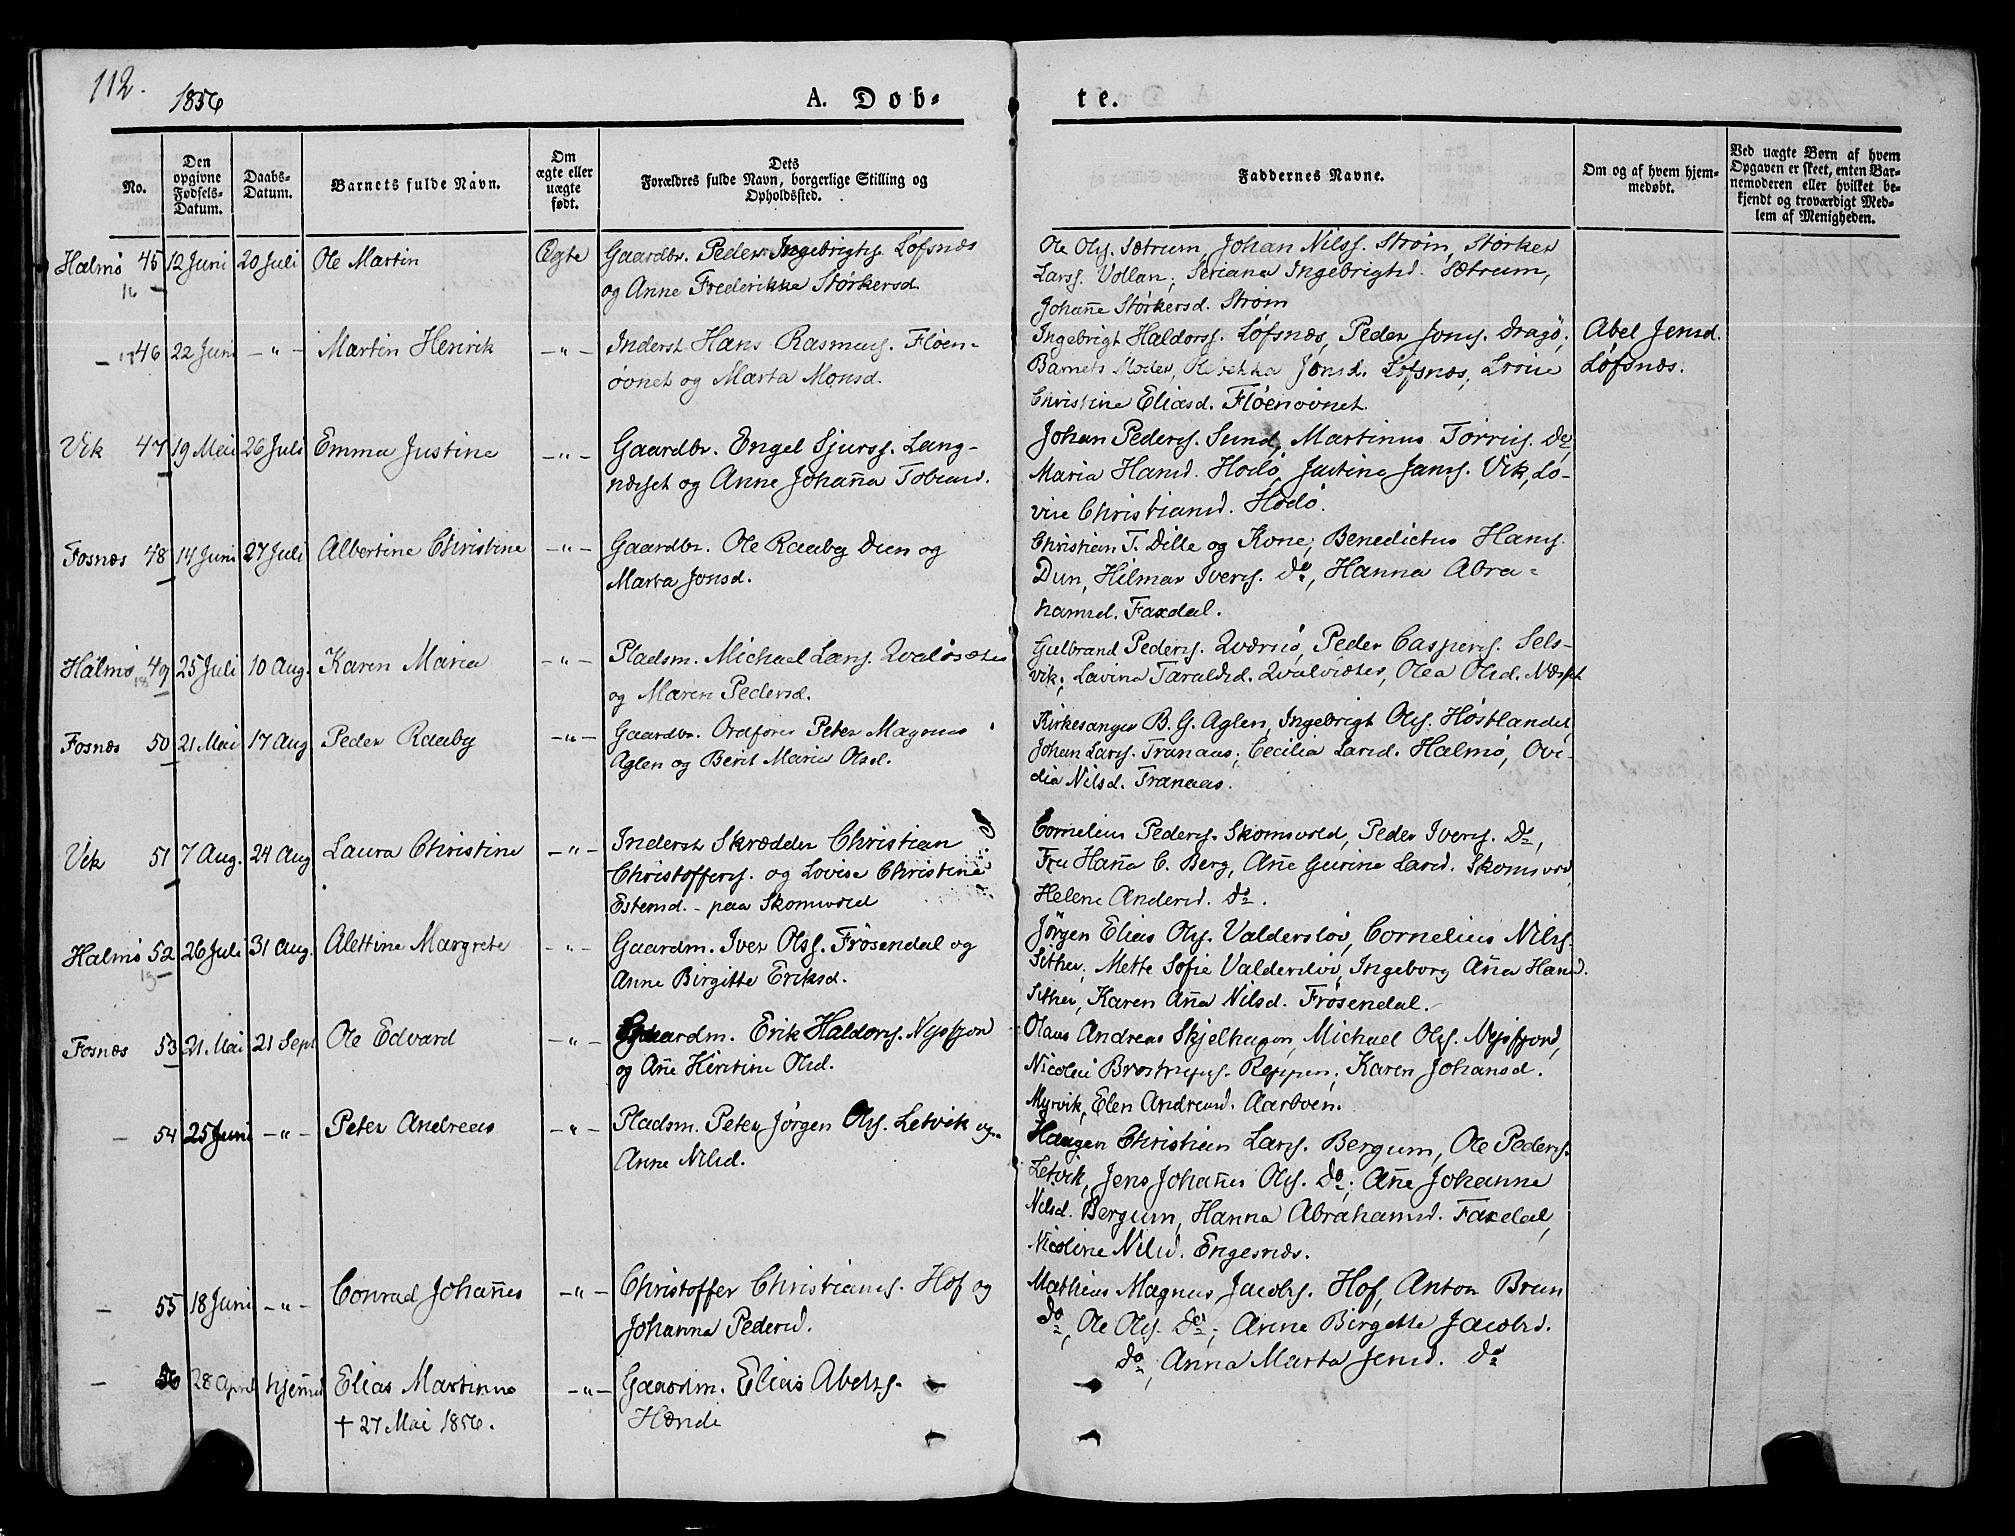 112.
1856
A. Døb-
te.
No.
Den opgivne Fødsels-Datum.
Daabs-Datum.
Barnets fulde Navn.
Om ægte eller uægte født.
Dets Forældres fulde Navn, borgerlige Stilling og Opholdssted.
Faddernes Navne.
Om og af hvem hjemmedøbt.
Ved uægte Børn af hvem Opgaven er skeet, enten Barnemoderen eller hvilket bekjendt og troværdigt Medlem af Menigheden.
Halmø 45 12 Juni 20 Juli Ole Martin Ægte Gaardbr. Peder Ingebrigtss. Løfsnæs
16 og Anne Frederikke Størkersd.
Ole Ols. Sætrum, Johan Nilss. Strøm, Størker
Larss. Vollan; Seriana Ingebrigtsd. Sætrum,
Johañe Størkersd. Strøm
- 17 46 22 Juni -"- Martin Henrik -"- Inderst Hans Rasmuss. Fløen-
øvnet og Marta Monsd.
Ingebrigt Haldorss. Løfsnæs, Peder Jonss. Dragø,
Barnets Moder, Rebekka Jonsd. Løfsnæs,
Christine Eliasd. Fløenøvnet.
Abel Jensd.
Løfsnæs.
Vik 47 19 Mai 26 Juli Emma Justine -"- Gaardbr. Engel Sjurss. Lang-
næsset og Anne Johaña Tobiasd.
Johan Pederss. Sund, Martinus Torriss. Do,
Maria Hansd. Hodø, Justine Janss. Vik, Lo-
vise Christiansd. Hodø.
Fosnæs 48 14 Juni 27 Juli Albertine Christine -"- Gaardbr. Ole Raaby Dun og
Marta Jonsd.
Christian T. Dille og Kone, Benedictus Hanss.
Dun, Hilmar Iverss. do, Hanna Abra-
hamsd. Faxdal.
Halmø 49 25 Juli 10 Aug. Karen Maria -"- Pladsm. Michael Larss. Qvaløsæter
18 og Maren Pedersd.
Gulbrand Pederss. Qværnø, Peder Casperss. Sels-
vik; Lavina Taraldsd. Olea Olsd. Næsset
Fosnæs 50 21 Mai 17 Aug Peder Raaby -"- Gaardbr. Ordfører Peter Magnus
Aglen og Berit Maria Olsd.
Kirkesanger B. G. Aglen, Ingebrigt Ols. Høstlandet,
Johan Larss. Tranaas; Cecilia Larsd. Halmø, Ovi-
dia Nilsd. Tranaas.
Vik 51 7 Aug. 24 Aug Laura Christine -"- Inderst Skrædder Christian
Christofferss. og Lovise Christine
Estensd. - paa Skomsvold
Cornelius Pederss. Skomsvold, Peder Iverss. Do,
Fru Haña C. Berg, Añe Gurine Larsd. Skomsvold
Helene Andersd. Do.
Halmø 52 26 Juli 31 Aug. Alettine Margrete -"- Gaardm. Iver Olss. Frøsendal og
19 Anne Birgitte Eriksd.
Jørgen Elias Ols. Valdersløv, Cornelius Nilss.
Sither; Mette Sofie Valdersløv, Ingeborg Aña Hansd.
Sither, Karen Aña Nilsd. Frøsendal.
Fosnæs 53 21 Mai 21 Sept Ole Edvard -"- Gaardm. Erik Haldorss. Nysfjord
og Añe Olsd.
Olaus Andreas Skjelhaugen, Michael Ols. Nysfjord,
Nicolai Brostrups. Reppen; Karen Johansd.
Myrvik, Elen Andreasd. Aarboen.
- 54 25 Juni -"- Peter Andreas -"- Pladsm. Peter Jørgen Ols. Letvik og
Anne Nilsd.
Haagen Christian Larss. Bergum, Ole Pederss.
Letvik, Jens Johañes Ols. Do; Añe Johanne
Nilsd. Bergum, Hanna Abrahamsd. Faxdal,
Nicoline Nilsd. Engesnæs.
- 55 18 Juni -"- Conrad Johañes -"- Christoffer Christianss. Hof og
Johanna Pedersd.
Mathias Magnus Jacobss. Hof, Anton Brun
Do, Ole Ols. Do; Anne Birgette Jacobsd.
do, Anna Marta Jensd. Do
- 56 28 April hjemmed Elias Martinus -"- Gaardm. Elias Abelss.
† 27 Mai 1856. Hænde